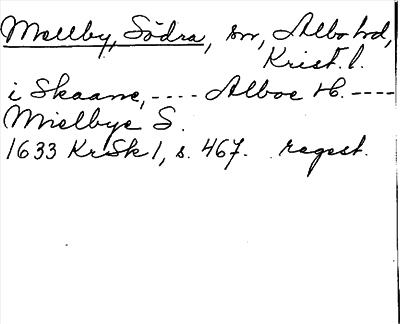 Mellby, Södra, sn, Albo hd,
Krist. l.
i Skaane, ---- Alboe H. ----
Mielbye S.
1633 KrSk 1, s. 467. regest.